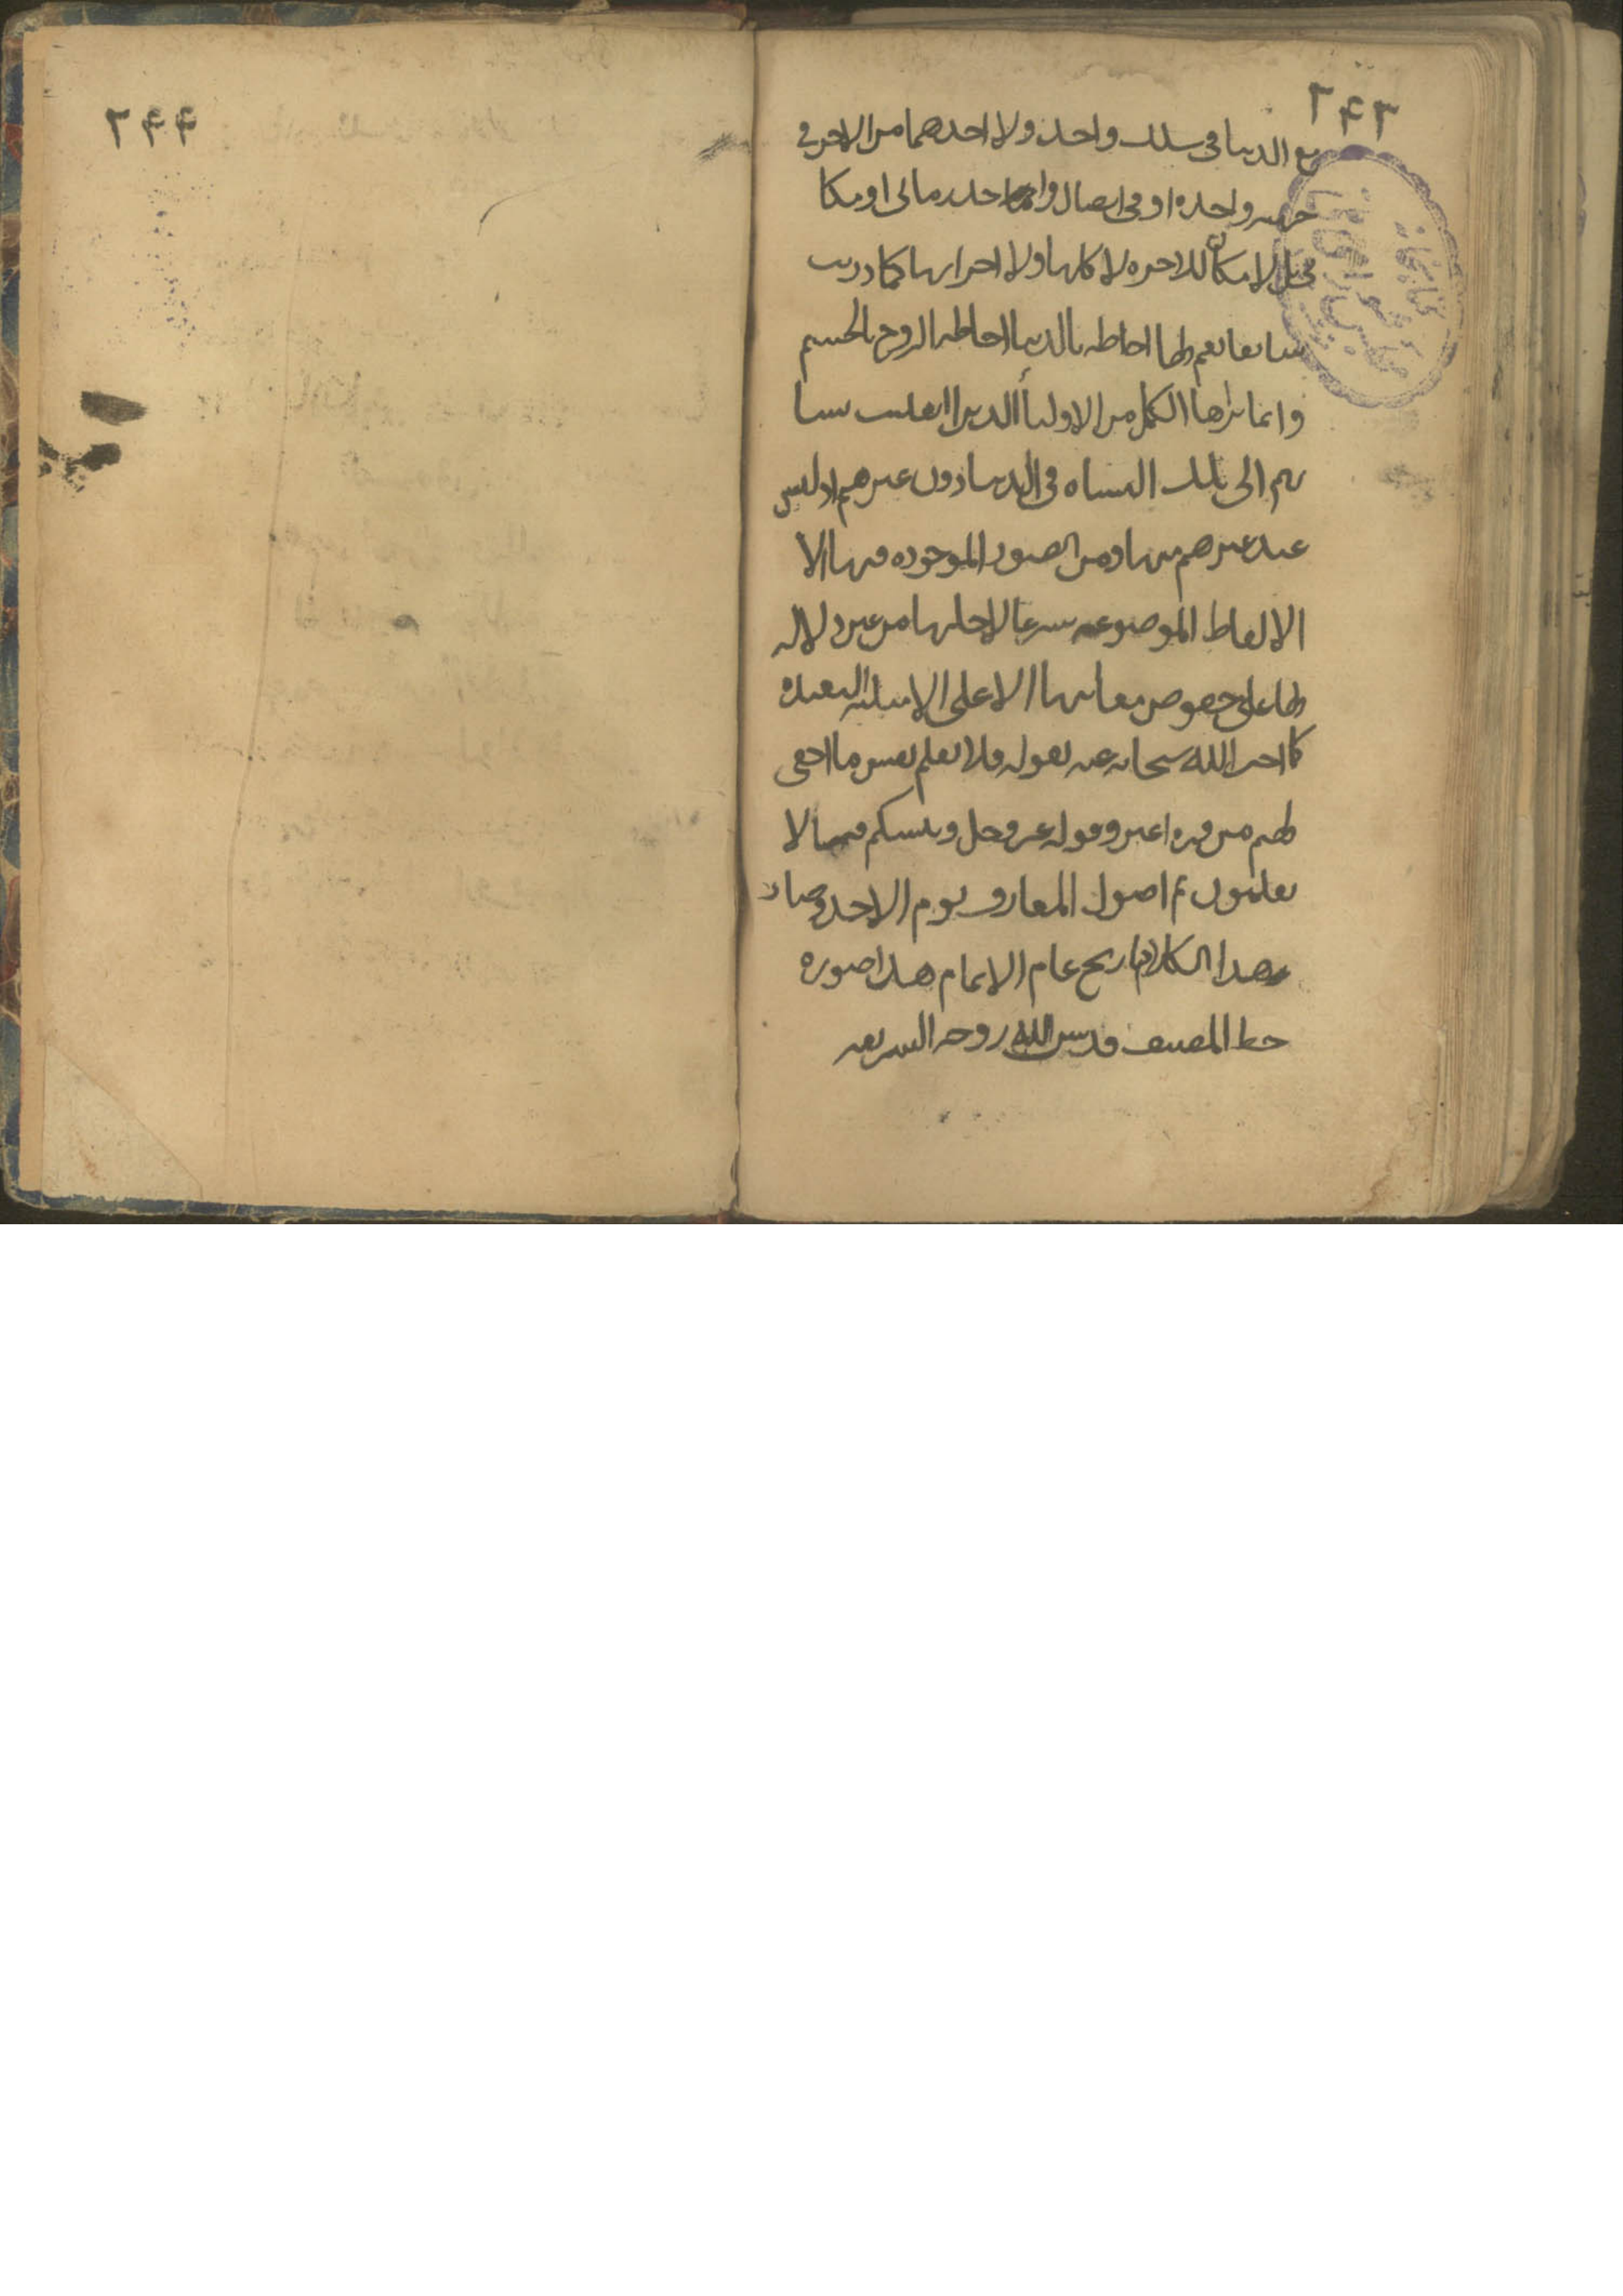 ٢٤٣
مع الدنيا في سلك واحد ولا احدهما من الاخر في
جهه واحده او في اتصال واحد زماني او مكا
ني بل لا مكان للاخره لا كلها ولا اجزائها كما دريت
سابقا نعم لها احاطه بالدنيا احاطه الروح بالجسم
وانما يراها الكمل من الاولياء الذين انقلبت نشا
تهم الى تلك النشاه في الدنيا دون غيرهم اذ ليس
عند غيرهم منها ومن الصور الموجوده فيها الا
الالفاظ الموضوعه شرعا لاجلها من غير دلاله
لها على خصوص معانيها الا على الامثله البعيده
كما اخبر الله سبحانه عنه بقوله فلا تعلم نفس ما اخفى
لهم من قره اعين وقوله عز وجل وننشئكم فيما لا
تعلمون تم اصول المعارف يوم الاحد وصار
هذا الكلام تاريخ عام الاتمام هذا صوره
خط المصنف قدس الله روحه الشريفه
٢٤٤